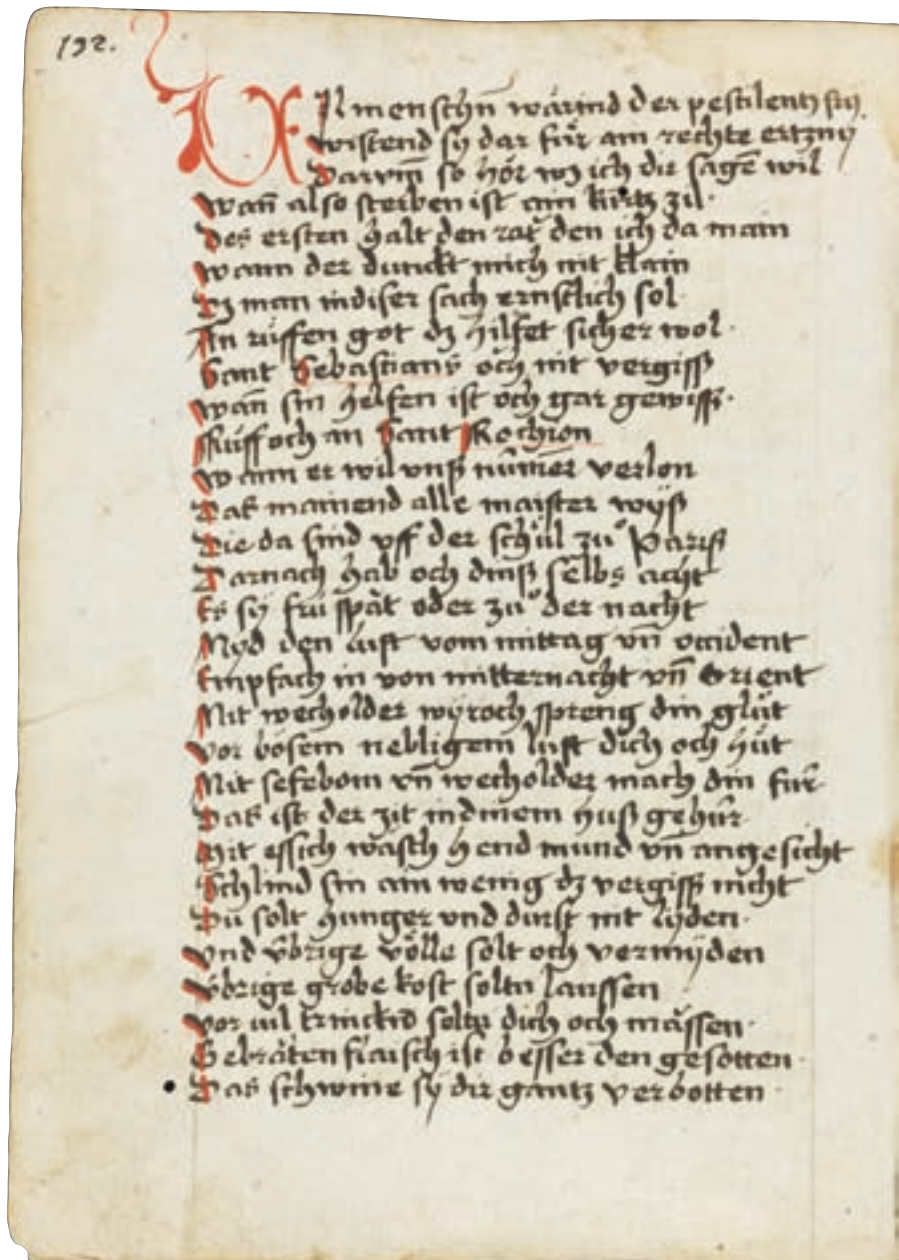 192.
Vil menschñ wärind der pestilentz fry
wistend sy dar für ain rechte ertzny
Darvm̄ so hör wz ich dir sagē wil
wan̄ also sterben ist ain kurtz zil·
Des ersten halt den rǎt den ich da main
wann der dunckt mich nit klain
Dz man in diser sach ernstlich sol
An rüffen got dz hilfet sicher wol·
Sant Sebastiany och nit vergiss
wan̄ sin helfen ist och gar gewiss·
Rüff och an Sant Rochion
wann er wil vnß nūmer verlon
Daß mainend alle maister wyß
Die da sind vff der schůl zů Pariß
Darnach hab och dinß selbs acht
Es sy frü spǎt oder zů der nacht
Myd den luft vom mittag vn̄ occident
Empfach in von mitternacht vn̄ Orient
Mit wecholder wyroch spreng din glůt
vor bösem nebligem luft dich och hůt
Mit sefebom vn̄ wecholder mach din für
Daß ist der zit in dinem huß gehür
Mit essich wäsch hend mund vn̄ angesicht
Schlind sin ain wenig dz vergiss nicht
Du solt hunger vnd durst nit lyden·
vnd übrige völle solt och vermyden
übrige grobe kost soltu laussen
vor vil trinckēd soltu dich och mässen·
Gebräten flaisch ist besser den gesotten·
Das schwine sy dir gantz verbotten·